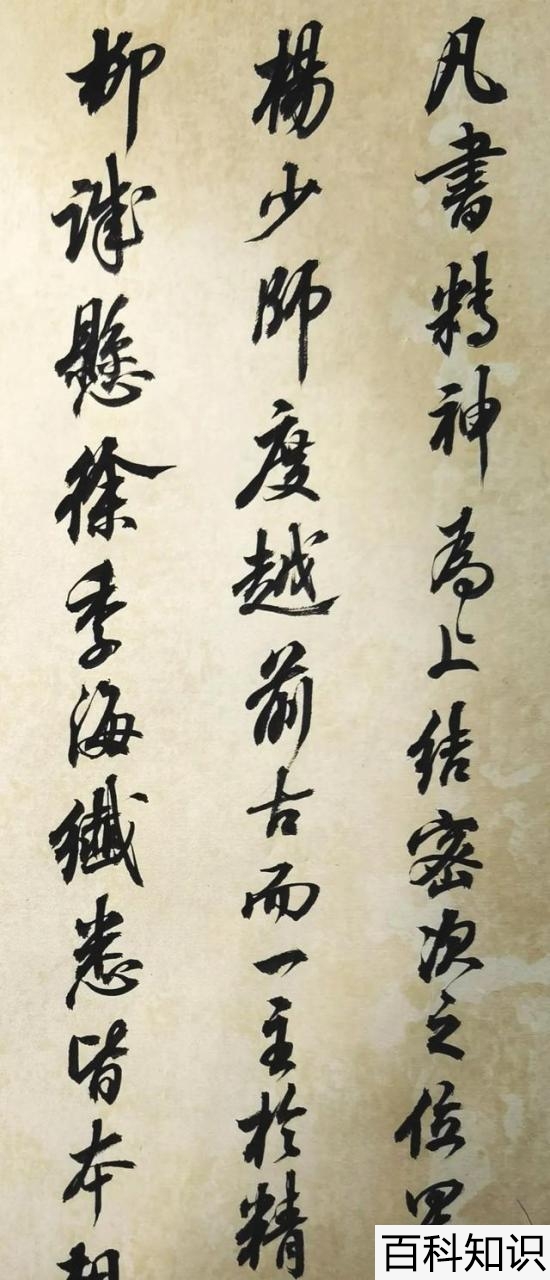 凡書精神為上結密次之位置
楊少師度越前古而一主於精
柳誠懸徐季海纖悉皆本
百科知识